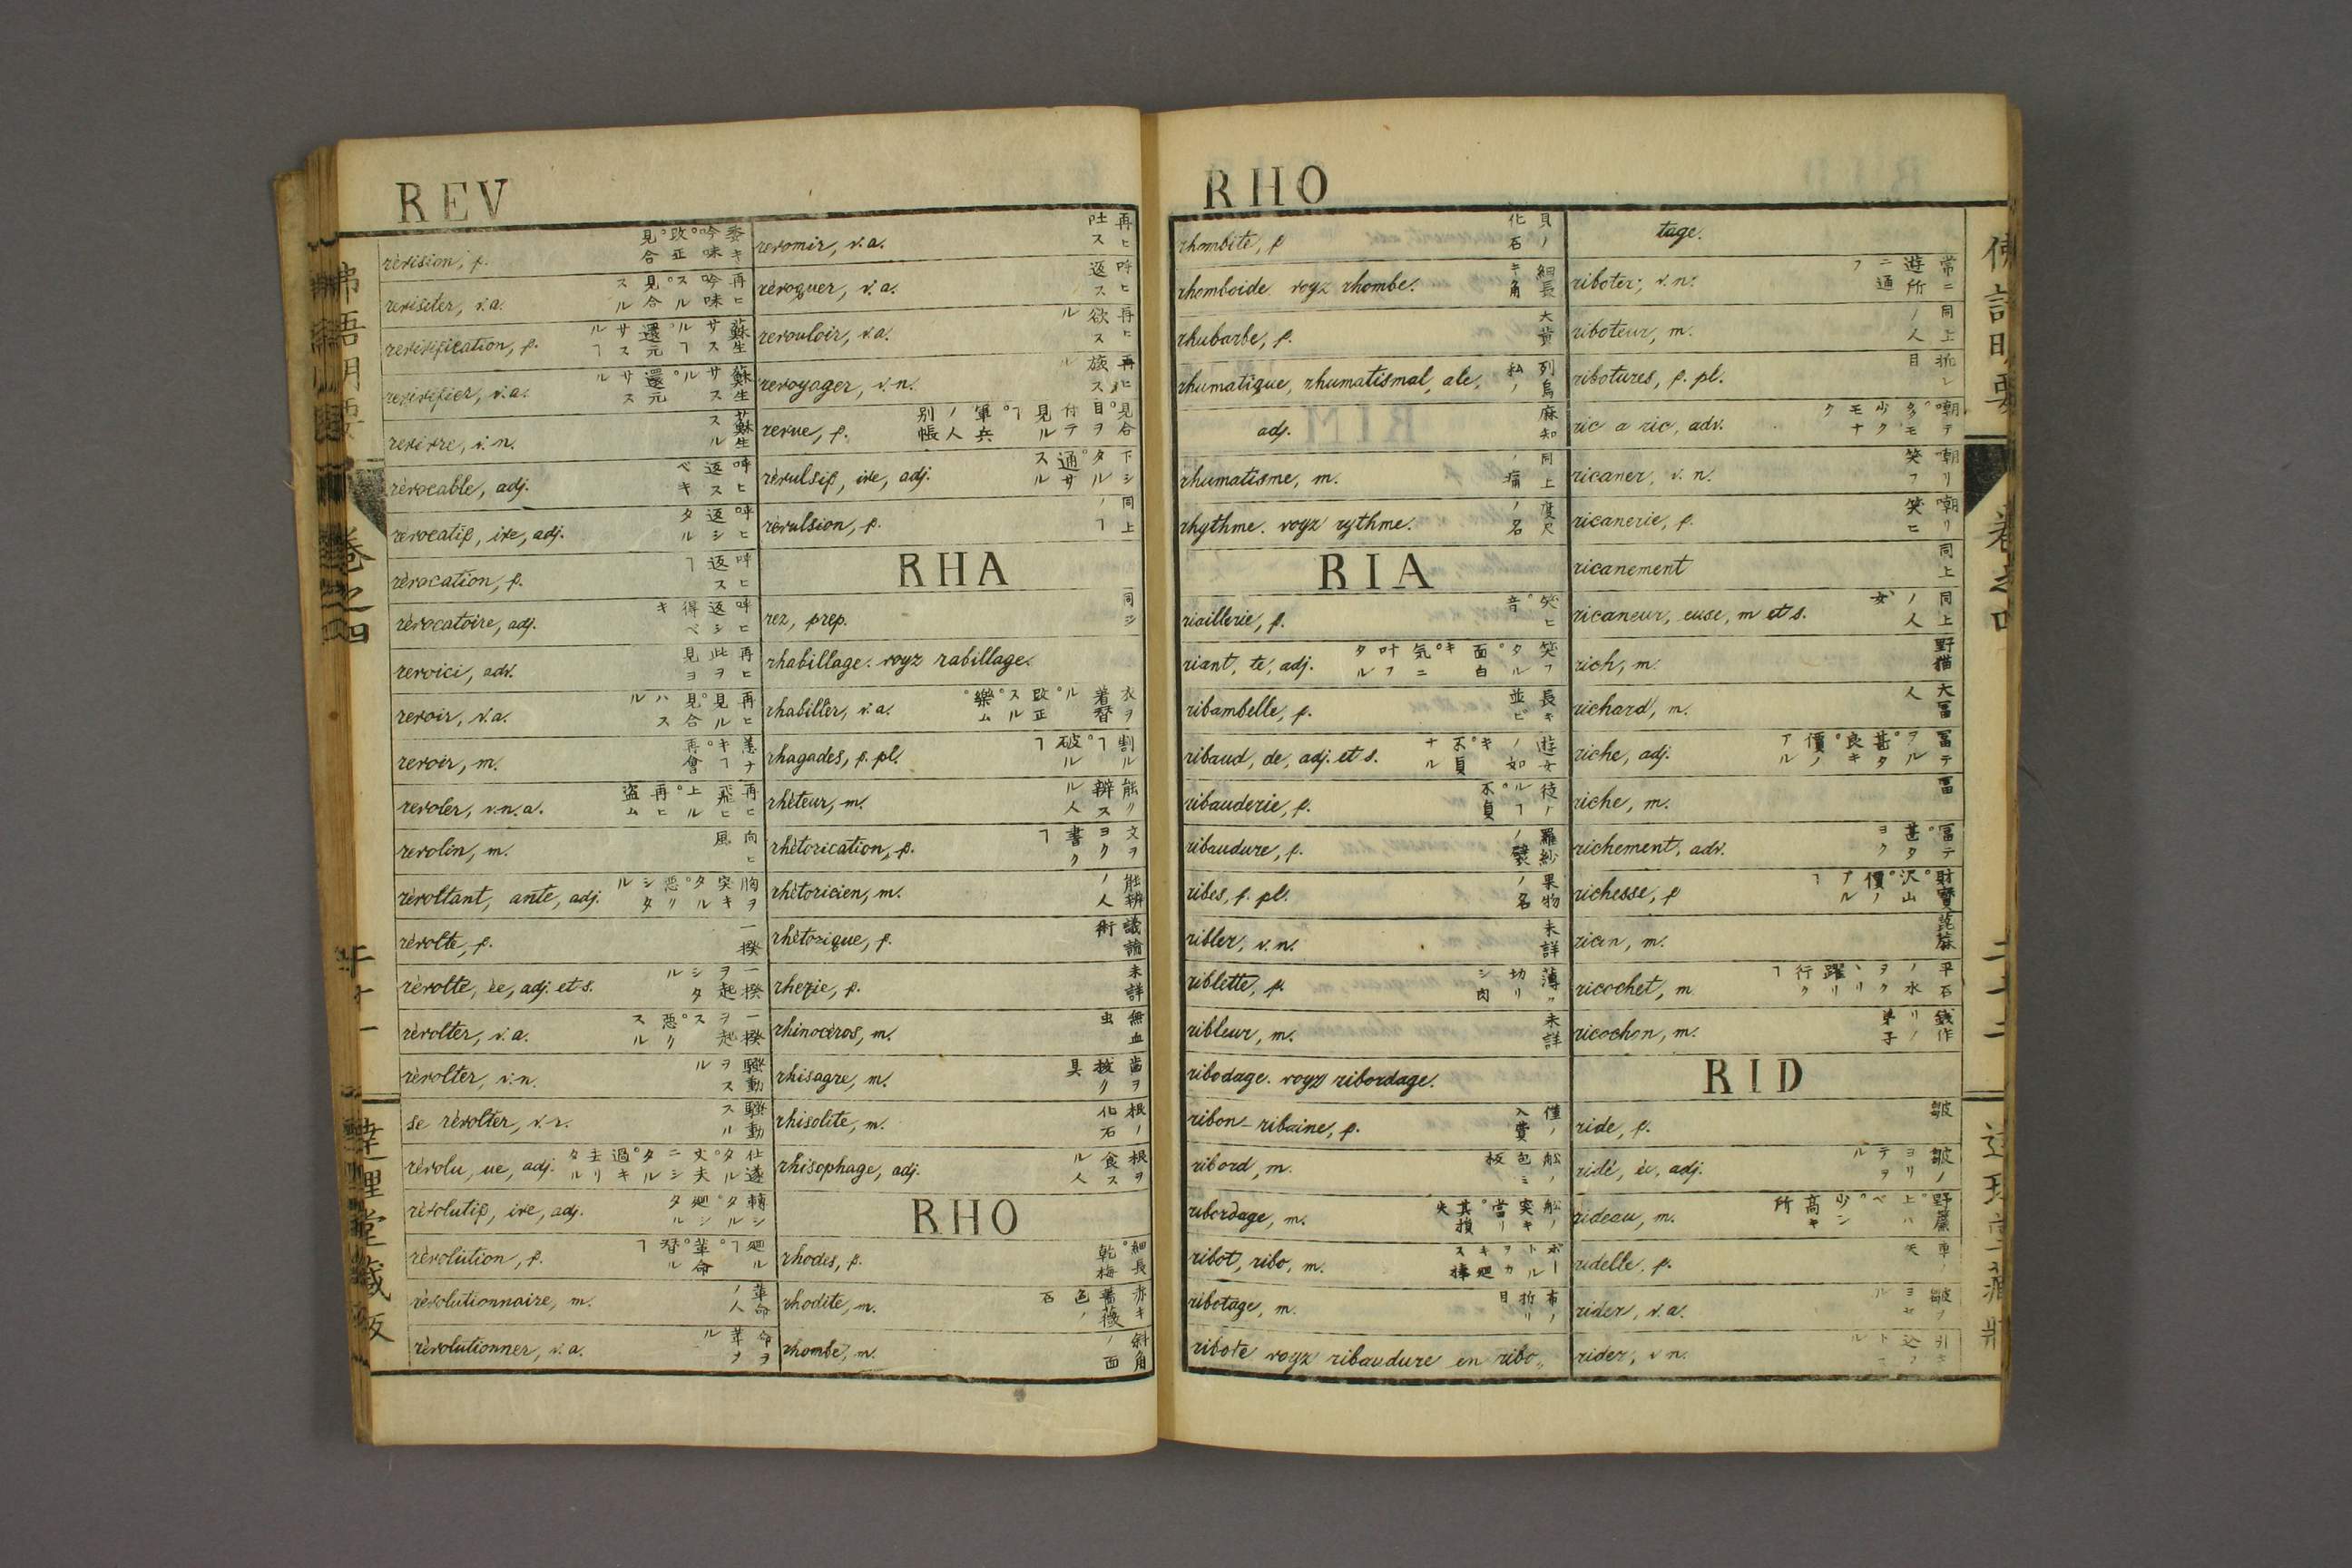 REV
révision, f. 委キ吟味。改正。見合
reviseter, v.a. 再ヒ吟味スル。見合スル
revivification, f. 蘇生サスルヿ。還元サスルヿ
revivifier, v.a. 蘇生サスル。還元サスル
revivre, v.n. 蘇生スル
révocable, adj. 呼ヒ返スベキ
révocatif, ive, adj. 呼ヒ返シタル
révocation, f. 呼ヒ返スヿ
révocatoire, adj. 呼ヒ返シ得ベキ
revoici, adv. 再ヒ此ヲ見ヨ
revoir, v.a. 再ヒ見ル。見合ハスル
revoir, m. 再會
revoler, v.n.a. 再ヒ飛ヒ上ル。再ヒ盗ム
revolin, m. 向ヒ風
révoltant, ante, adj. 胸ヲ突キタル。悪リシタル
révolte, f. 一揆
révolté, ée, adj. et s. 一揆ヲ起シタル
révolter, v.a. 一揆ヲ起ス。悪リスル
révolter, v.n. 騒動ヲスル
se révolter, v.r. 騒動スル
révolu, ue, adj.
révolutif, ive, adj. 轉シタル。廻シタル
révolution, f. 廻ルヿ。革命。替ルヿ
révolutionnaire, m. 革命ノ人
révolutionner, v.a. 革命ヲナル
revomir, v.a. 再ヒ吐ス
révoquer, v.a. 呼ヒ返ス
revouloir, v.a. 再ヒ欲スル
revoyager, v.n. 再ヒ旅スル
revue, f. 見合。目ヲ付テ見ルヿ。軍兵ノ人別帳
révulsif, ive, adj. 下シタル。通サスル
révulsion, f. 同上ノヿ
RHA
rez, prep. 同シ
rhabillage. voyz rabillage.
rhabiller, v.a. 衣ヲ着替ル。改正スル。樂ム。
rhagades, f. pl. 割ルヿ。破ルヿ
rhéteur, m. 能ク辨スル人
rhétorication, f. 文ヲヨク書クヿ
rhétoricien, m. 能辨ノ人
rhétorique, f. 議論術
rhezie, f. 未詳
rhinocéros, m. 無血虫
rhisagre, m. 歯ヲ抜ク具
rhisolite, m. 根ノ化石
rhisophage, adj. 根ヲ食スル人
RHO
rhodes, f. 細長。乾梅
rhodite, m. 赤キ薔薇色ノ石
rhombe, m. 斜角ノ面
RHO
rhombite, f 貝ノ化石
rhomboide voyz rhombe. 細長キ角
rhubarbe, f. 大黄
rhumatique, rhumatismal, ale, adj. 列烏麻知私ノ
rhumatisme, m. 同上ノ痛
rhythme. voyz rythme. 度尺ノ名
RIA
riaillerie, f. 笑ヒ音
riant, te, adj. 笑フタル。面白キ。気ニ叶フタル
ribambelle, f. 長キ並ビ
ribaud, de, adj. et s. 遊女ノ如キ。不貞ナル
ribauderie, f. 不貞
ribaudure, f. 羅紗ノ襞
ribes, f. pl. 果物ノ名
ribler, v.n. 未詳
riblette, f. 薄ク切リシ肉
ribleur, m. 未詳
ribodage. voyz ribordage.
ribon-ribaine, f. 僅ノ入費
ribord, m. 舩ノ包ミ板
ribordage, m. 舩ノ突キ當リ。其損失
ribot, ribo, m.
ribotage, m. 布ノ折リ目
ribote voyz ribaudure en ribo,,
tage.
riboter, v.n. 常ニ遊所ニ通フ
riboteur, m. 同上ノ人
ribotures, f. pl. 折レ目
ric a ric, adv.
ricaner, v.n. 嘲リ笑フ
ricanerie, f. 嘲リ笑ヒ
ricanement 同上
ricaneur, euse, m et s. 同上ノ人 女
rich, m. 野猫
richard, m. 大冨人
riche, adj. 冨テヲル。甚タ良キ。價ノアル
riche, m. 冨
richement, adv. 冨テ。甚タヨク
richesse, f 財寶。沢山。價ノアルヿ
ricin, m. 萞麻
ricochet, m 平石ノ水ヲクヽリ躍リ行クヿ
ricochon, m. 銭作リノ弟子
RID
ride, f. 皺
ridé, ée, adj. 皺ノヨリテヲル
rideau, m.
ridelle, f.
rider, v.a. 皺ヲヨセル
rider, v n.